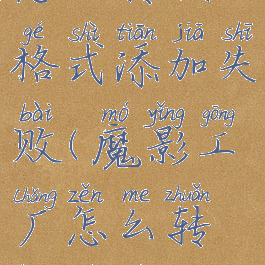 gé shì tiān jiā shī
格式添加失
bài mó yǐng gōng
败(魔影工
chǎng zěn me zhuǎn
厂怎么转